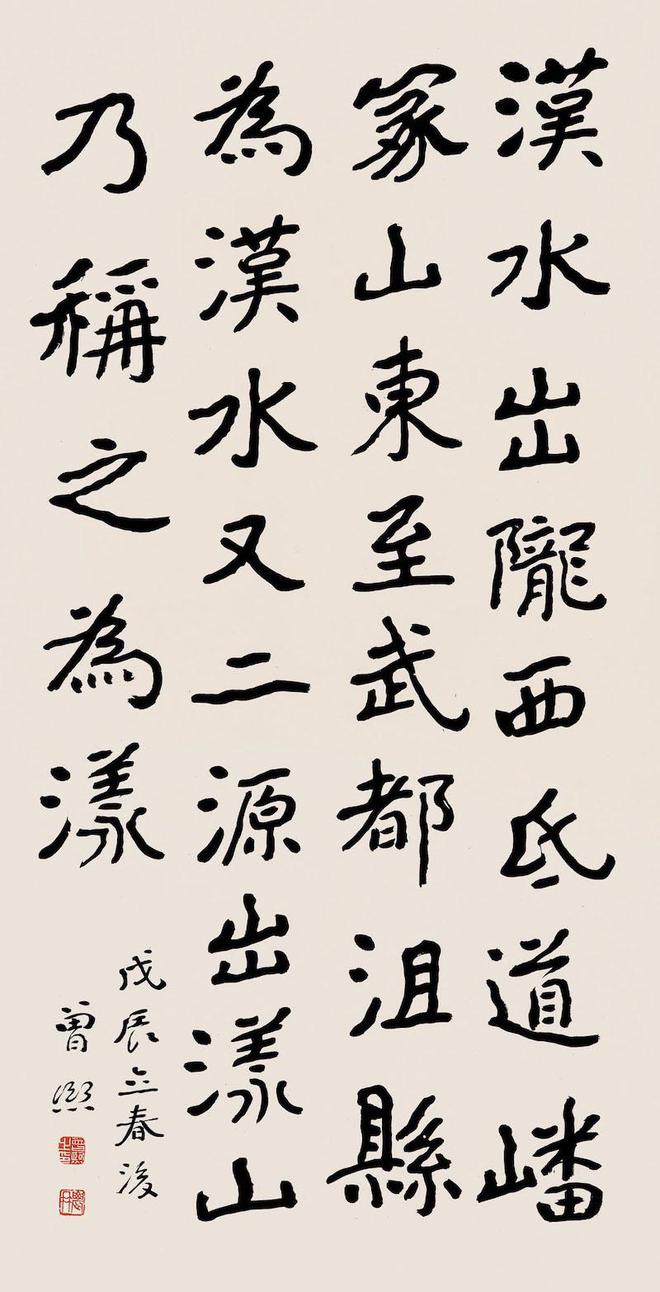 漢水出隴西氐道嶓
冢山東至武都沮縣
為漢水又二源出漾山
乃稱之為漾
戊辰立春後
曾熙